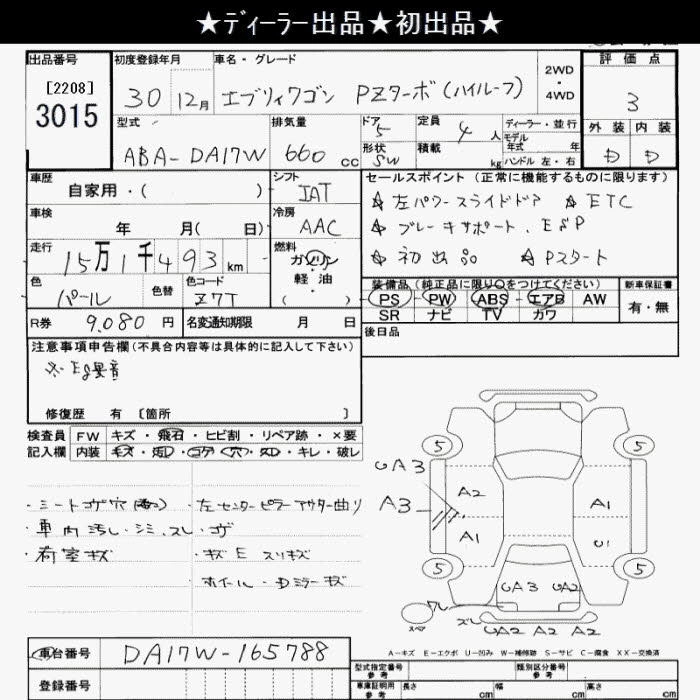 ★ディーラー出品★初出品★
出品番号 初度登録年月 車名・グレード 2WD・4WD 評価点
[2208] 3015 30 12月 エブリィワゴン PZターボ(ハイルーフ) 3
型式 排気量 ドア 5 定員 4 人 ディーラー・並行 外装 内装
モデル年式 年
ABA-DA17W 660 cc 形状 SW 積載 kg ハンドル 左・右 D D
車歴 シフト セールスポイント (正常に機能するものに限ります)
自家用・( ) IAT ☆左パワースライドドア ☆ETC
車検 冷房 ☆ブレーキサポート、ESP
年 月( 日) AAC ☆初出品 ☆Pスタート
走行 燃料
15万1千493km ガソリン・軽油 ( )
色 色替 色コード 装備品 (純正品に限り○をつけてください) 新車保証書
パール Z7T PS PW ABS エアB AW 有・無
SR ナビ TV カワ
R券 9,080 円 名変通知期限 月 日 後日品
注意事項申告欄 (不具合内容等は具体的に記入して下さい)
※Eg異音
修復歴 有 〔箇所 〕
検査員 FW キズ・飛石・ヒビ割・リペア跡・×要
記入欄 内装 キズ・汚レ・コゲ・穴・スレ・キレ・破レ
・シートコゲ穴 ・左センターピラーアウター曲り
・車内汚し・シミ、スレ・コゲ
・荷室キズ ・キズE スリキズ
ホイール・Dミラーキズ
5 5
UA3
A3 A2 A1
A1 U1
5 5
UA3 UA2
UA2 A2 A2
A-キズ E-エクボ U-凹み W-補修跡 S-サビ C-腐食 XX-交換済
車台番号 DA17W-165788
型式指定番号 参考 類別区分番号 参考
登録番号 車庫証明用 参考 長さ cm 幅 cm 高さ cm